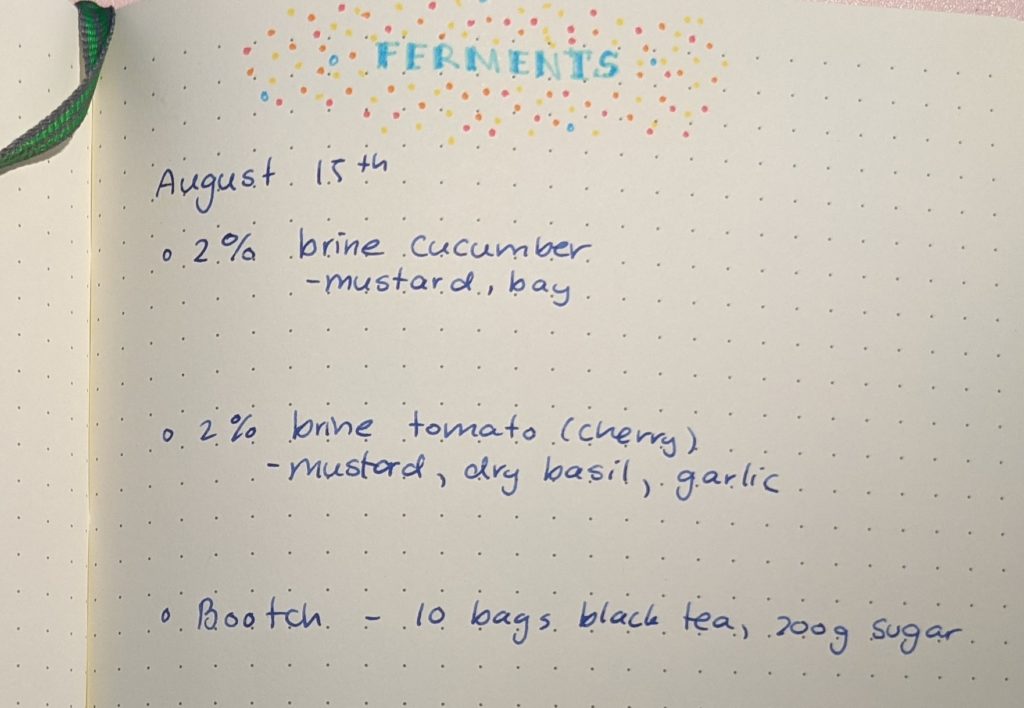 FERMENTS
August 15th
o 2% brine cucumber
- mustard, bay
o 2% brine tomato (cherry)
- mustard, dry basil, garlic
o Bootch - 10 bags black tea, 200g sugar